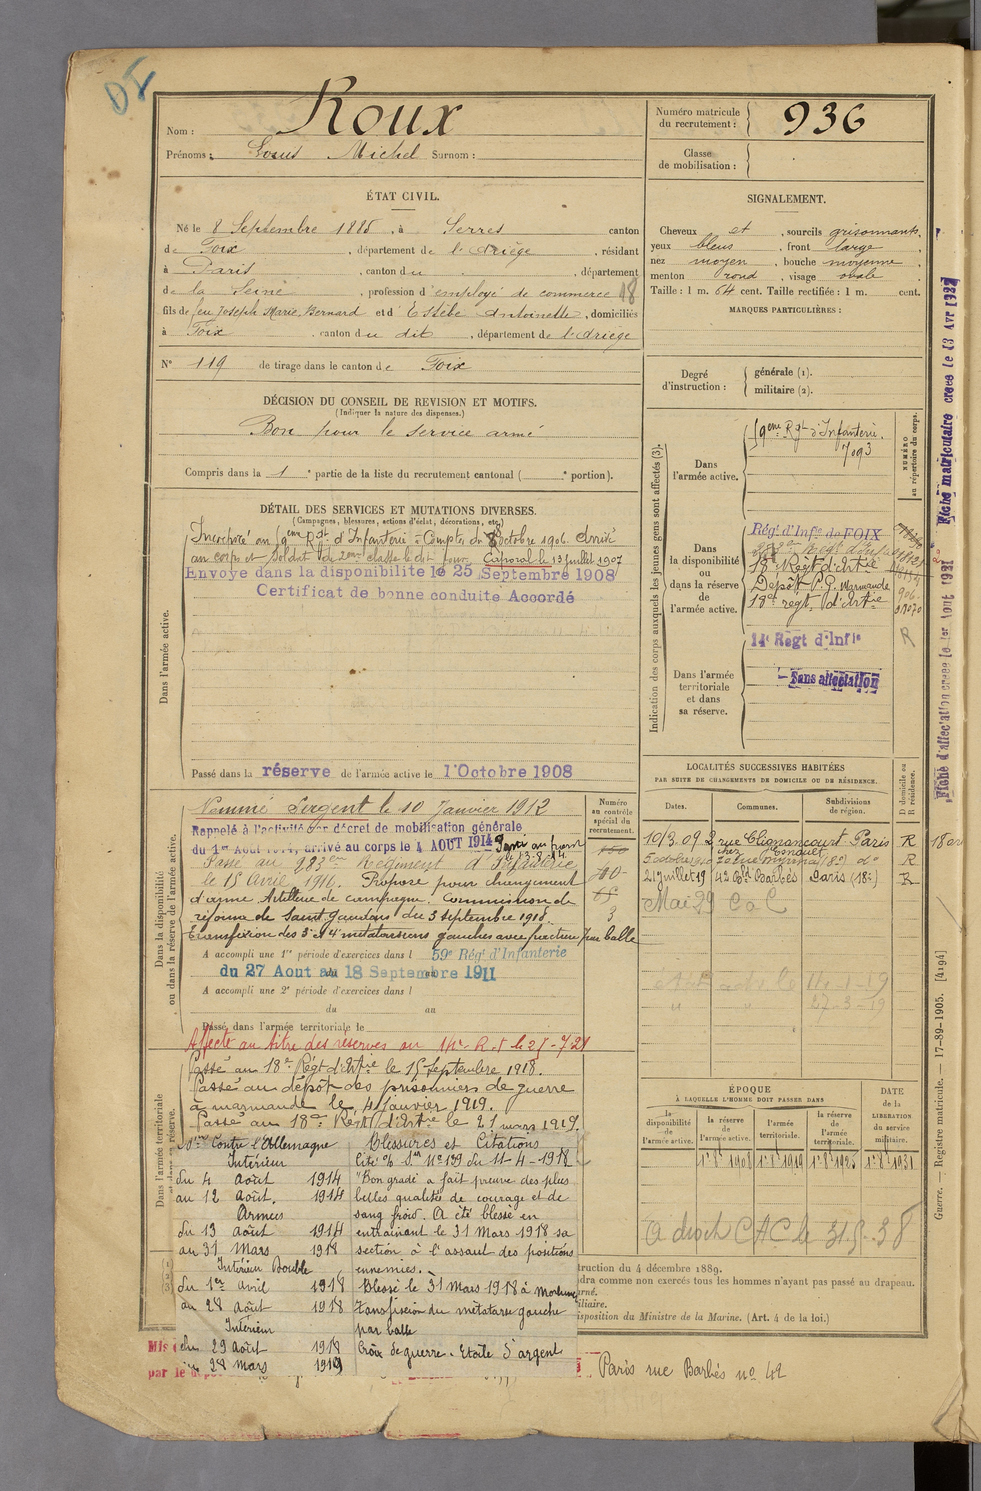 Nom : Roux
Prénoms : Louis Michel Surnom :
Numéro matricule du recrutement : 936
Classe de mobilisation :
ÉTAT CIVIL.
Né le 8 Septembre 1885, à Serres canton
de Foix, département de l'Ariège, résidant
à Paris, canton du , département
de la Seine, profession d'employé de commerce 18
fils de feu Joseph Marie Bernard et d'Estèbe Antoinette, domiciliés
à Foix canton du dit, département de l'Ariège
N° 119 de tirage dans le canton de Foix
SIGNALEMENT.
Cheveux et, sourcils grisonnants,
yeux bleus, front large
nez moyen, bouche moyenne
menton rond, visage ovale
Taille : 1 m. 64 cent. Taille rectifiée : 1 m. cent.
MARQUES PARTICULIÈRES :
Degré d'instruction :
générale (1).
militaire (2).
DÉCISION DU CONSEIL DE REVISION ET MOTIFS.
(Indiquer la nature des dispenses.)
Bon pour le service armé
Compris dans la 1e partie de la liste du recrutement cantonal ( e portion).
DÉTAIL DES SERVICES ET MUTATIONS DIVERSES.
(Campagnes, blessures, actions d'éclat, décorations, etc.)
Incorporé au 9eme Rgt d'Infanterie à Compter du 8 octobre 1906 Arrivé
au corps et Soldat de 2eme classe le dit jour Caporal le 13 juillet 1907
Envoye dans la disponibilite le 25 Septembre 1908
Certificat de bonne conduite Accordé
Dans l'armée active.
Passé dans la réserve de l'armée active le 1 Octobre 1908
Indication des corps auxquels les jeunes gens sont affectés (3).
Dans l'armée active.
9eme Rgt d'Infanterie.
7093
NUMÉRO au répertoire du corps.
Dans la disponibilité ou dans la réserve de l'armée active.
Régt d'Infie de FOIX
18e Régt d'Artie
Depôt P.G. Marmande
18e regt d'Artie
R
Dans l'armée territoriale et dans sa réserve.
14e Regt d'Infie
Sans affectation
Dans la disponibilité ou dans la réserve de l'armée active.
Nommé Sergent le 10 Janvier 1912
Rappelé à l'activité par décret de mobilisation générale
du 1er Août 1914, arrivé au corps le 4 AOUT 1914 Parti au front
le 13-8-14.
Passé au 283eme Régiment d'Infanterie
le 15 Avril 1916. Proposé pour changement
d'arme Artillerie de campagne. Commission de
réforme de Saint Gaudens du 3 septembre 1918.
Transfixion des 3e et 4e métatarsiens gauches avec fracture par balle
A accompli une 1re période d'exercices dans l 59e Rég. d'Infanterie
du 27 Aout au 18 Septembre 1911
A accompli une 2e période d'exercices dans l
du au
Passé dans l'armée territoriale le
Affecté au titre des réserves au 14e R.I le 25-7-21
Numéro au contrôle spécial du recrutement.
3
LOCALITÉS SUCCESSIVES HABITÉES
PAR SUITE DE CHANGEMENTS DE DOMICILE OU DE RÉSIDENCE.
Dates. Communes. Subdivisions de région. D domicile ou R résidence.
10/3.09 2 rue Clignancourt Paris R
21 juillet 19 42 Bd Barbès Paris (18e) R
Mai 29 CaC
27-3-19
Dans l'armée territoriale
Passé au 18e Régt d'Artie le 15 septembre 1918.
Passé au dépôt des prisonniers de guerre
à marmande le 4 Janvier 1919.
Passé au 18e Regt d'Artie le 21 mars 1919.
Contre l'Allemagne
Intérieur
du 4 août 1914
au 12 Août. 1914
Armées
du 13 août 1914
au 31 Mars 1918
Intérieur Double
du 1er avril 1918
au 28 août 1918
Intérieur
du 29 août 1918
au 28 mars 1919
Blessures et Citations
Cité O/b Don No 139 du 11-4-1918
"Bon gradé a fait preuve des plus
belles qualités de courage et de
sang froid. A été blessé en
entrainant le 31 Mars 1918 sa
section à l'assaut des positions
ennemies.
Blessé le 31 Mars 1918 à
Transfixion du métatarse gauche
par balle
Croix de guerre. Etoile d'argent
ÉPOQUE
À LAQUELLE L'HOMME DOIT PASSER DANS
la disponibilité de l'armée active.
la réserve de l'armée active.
l'armée territoriale.
la réserve de l'armée territoriale.
DATE de la LIBÉRATION du service militaire.
1er 8e 1908 1er 8e 1919 1er 8e 1925 1er 8e 1931
A droit CAC le 31.5.38
truction du 4 décembre 1889.
dra comme non exercés tous les hommes n'ayant pas passé au drapeau.
isposition du Ministre de la Marine. (Art. 4 de la loi.)
Paris rue Barbès no 42
Fiche matriculaire créée le 13 Avr 1937
Fiche d'affectation créée le 1er Aout 1921
Guerre. — Registre matricule. — 17-89-1905. [4194]